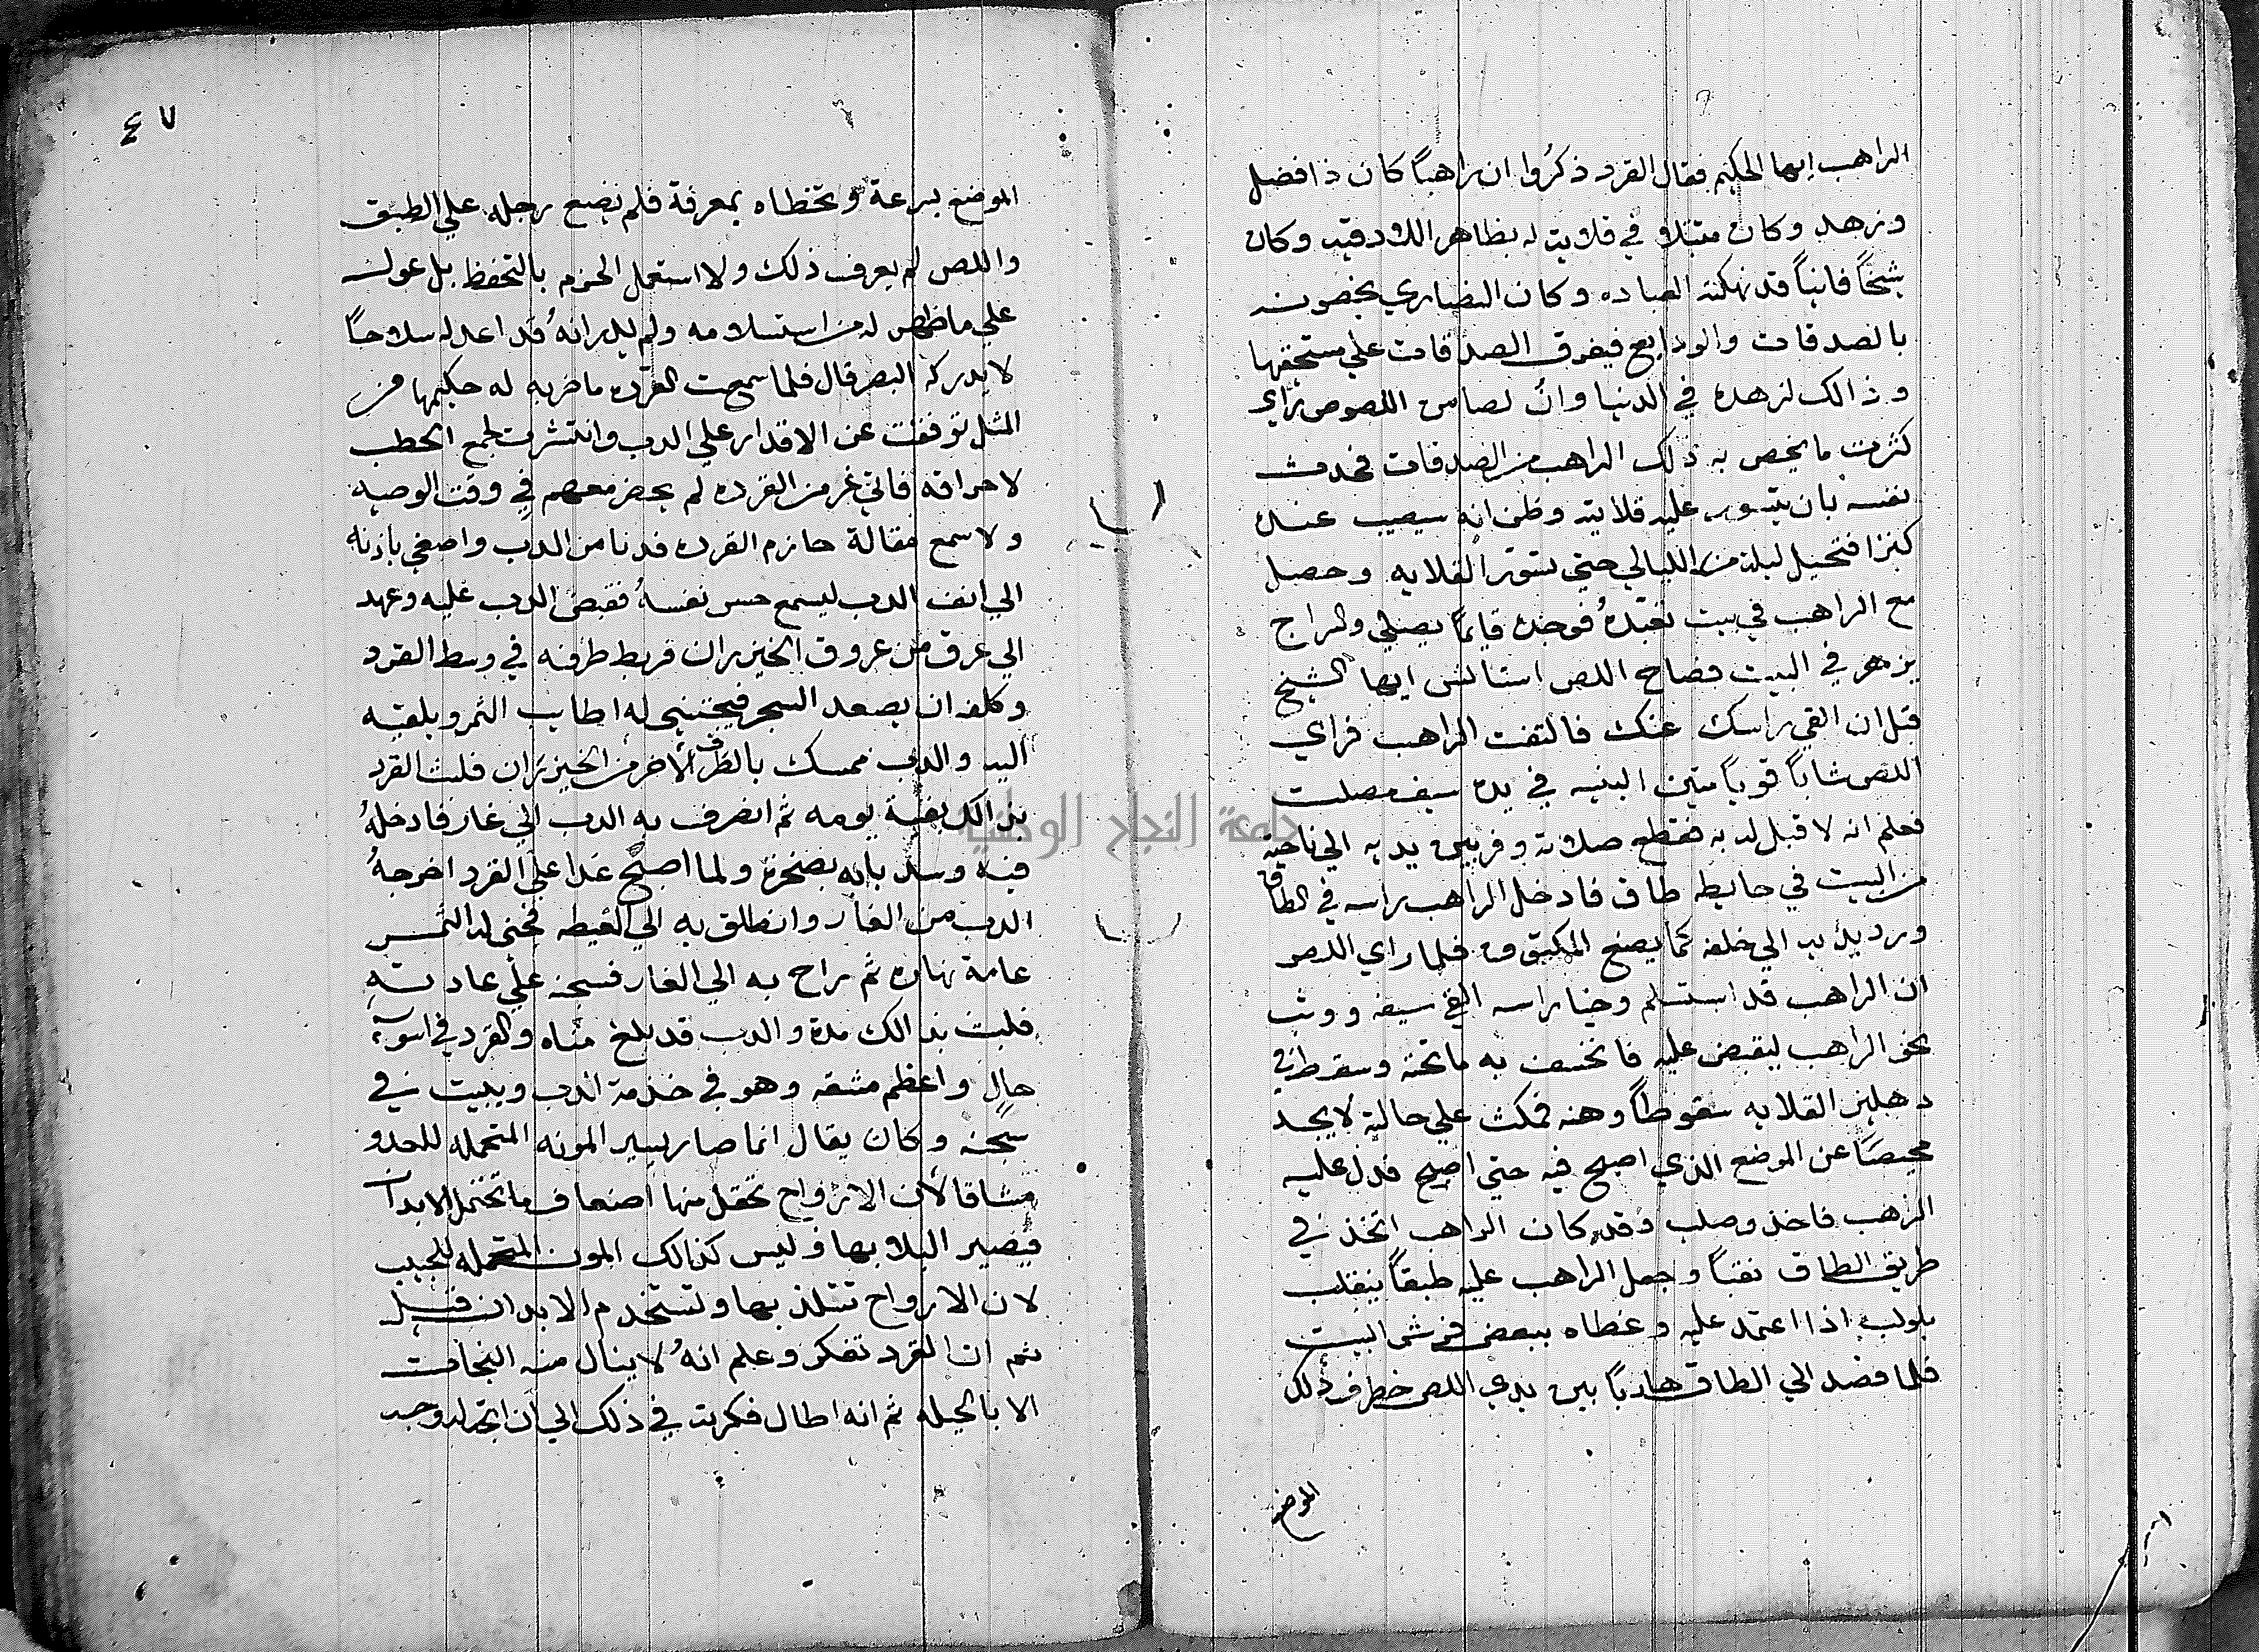 الراهب ايها الحكيم فقال القرد ذكروا ان راهباً كان ذا فضل
وزهد وكان متبتلا في قلايته له بظاهر اللادقيه وكان
شيخاً فانياً قد نهكته العباده وكان النصاري يخصونه
بالصدقات والودايع فيفرق الصدقات علي مستحقها
وذالك لزهده في الدنيا وان لصا من اللصوص راي
كثرت ما يخص به ذلك الراهب من الصدقات فحدث
نفسه بان يتسور عليه قلايته وظن انه سيصيب عنده
كنزا فتحيل ليلة من الليالي حتي تسور القلايه وحصل
مع الراهب في بيت تعبده فوجده قايماً يصلي والسراج
يزهر في البيت فصاح اللص استاسر ايها الشيخ
قبل ان القي راسك عنك فالتفت الراهب فراي
اللص شاباً قوياً متين البنيه في يده سيف مصلت
فعلم انه لا قبل له به فقطع صلاته وفر بين يديه الي ناحية
من البيت في حايطه طاق فادخل الراهب راسه في الطاق
ورد يديه الي خلفه كما يصنع المكتوف فلما راي اللص
ان الراهب قد استسلم وخبا راسه القي سيفه ووثب
نحو الراهب ليقبض عليه فانخسف به ما تحته وسقط في
دهليز القلايه سقوطاً وهنه فمكث علي حالة لا يجد
محيصاً عن الموضع الذي اصبح فيه حتي اصبح فدل عليه
الراهب فاخذ وصلب وقد كان الراهب اتخذ في
طريق الطاق نقباً وجعل الراهب عليه طبقاً ينقلب
بلولب اذا اعتمد عليه وغطاه ببعض فرش البيت
فلما قصد الي الطاق هارباً بين يدي اللص خطرف ذلك
الموضع
٤٧
الموضع بسرعة وتخطاه بمعرفة فلم يضع رجله علي الطبق
واللص لم يعرف ذلك ولا استعمل الحزم بالتحفظ بل عول
علي ما ظهر له من استسلامه ولم يدر انهُ قد اعد له سلاحاً
لا يدركه البصر قال فلما سمعت القرده ما ضربه له حكيمها من
المثل توقفت عن الاقدار علي الدب وانتشرت لجمع الحطب
لاحراقه فاتي غر من القرده لم يحضر معهم في وقت الوصيه
ولا سمع مقالة حازم القرده فدنا من الدب واصغي باذنه
الي انف الدب ليسمع حس نفسهُ فقبض الدب عليه وعهد
الي عرق من عروق الخيزران فربط طرفه في وسط القرد
وكلفه ان يصعد الشجر فيجتني له اطايب الثمر ويلقيه
اليه والدب ممسك بالطرف الاخر من الخيزران فلبث القرد
بذالك بقية يومه ثم انصرف به الدب الي غار فادخلهُ
فيه وسد بابه بصخرة ولما اصبح غدا علي القرد اخرجهُ
الدب من الغار وانطلق به الي الغيطه فجني له الثمر
عامة نهاره ثم راح به الي الغار فسجنه علي عادته
فلبث بذالك مدة والدب قد بلغ مناه والقرد في اسوء
حال واعظم مشقه وهو في خدمة الدب ويبيت في
سجنه وكان يقال انما صار يسير المونه المتحمله للعدو
مشاقا لان الارواح تحمل منها اضعاف ما تحتمل الابدان
فيصير البلا بها وليس كذالك المون المتحمله للحبيب
لان الارواح تتلذذ بها وتستخدم الابدان
ثم ان القرد تفكر وعلم انهُ لا ينال منه النجات
الا بالحيله ثم انه اطال فكرته في ذلك الي ان اتجه له وجه
جامعة النجاح الوطنية